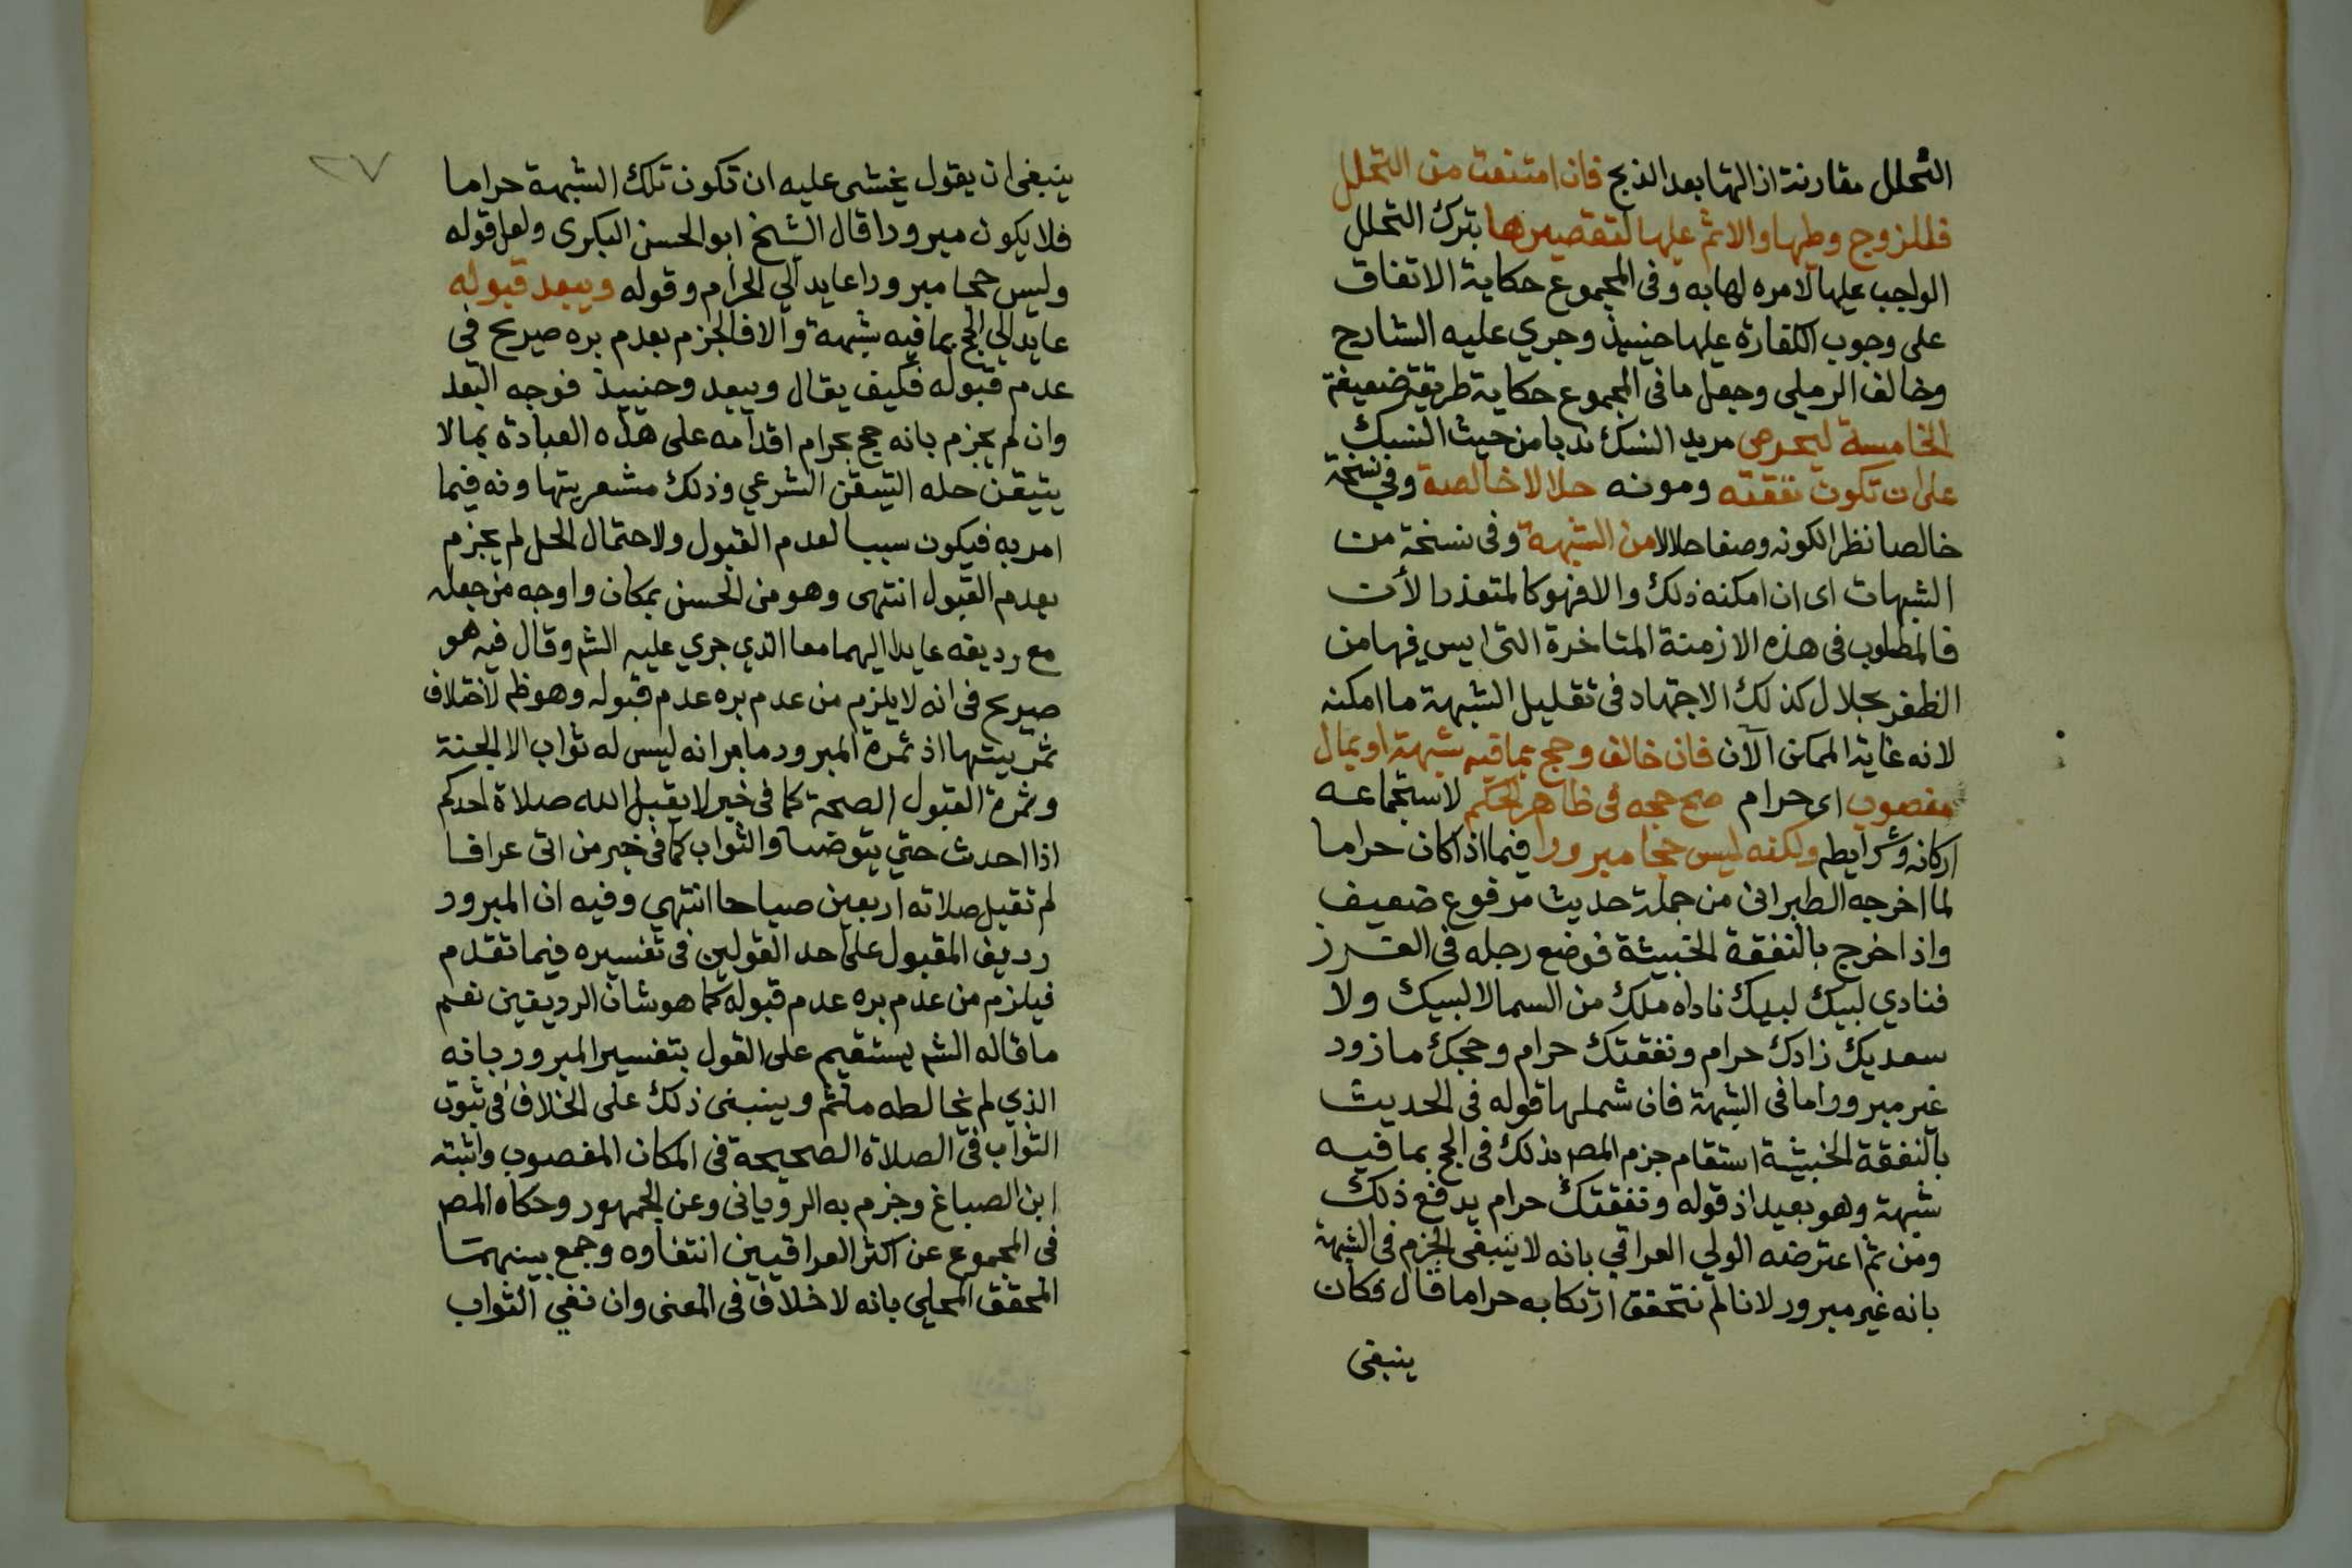 التحلل مقارنة ازالتها بعد الذبح فان امتنعت من التحلل
فللزوج وطيها والاثم عليها لتقصيرها بترك التحلل
الواجب عليها لامره لها به وفى المجموع حكاية الاتفاق
على وجوب الكفارة عليها حينيذ وجري عليه الشارح
وخالف الرملي وجعل ما فى المجموع حكاية طريقة ضعيفة
الخامسة ليحرص مريد النسك ندبا من حيث النسك
على ان تكون نفقته ومونه حلالا خالصة وفي نسخة
خالصا نظرا لكونه وصفا حلالا من الشبهة وفى نسخة من
الشبهات اى ان امكنه ذلك والا فهو كالمتعذر الآن
فالمطلوب فى هذه الازمنة المتاخرة التى ايس فيها من
الظفر بحلال كذلك الاجتهاد فى تقليل الشبهة ما امكنه
لانه غاية الممكن الآن فان خالف وحج بما فيه شبهة او بمال
مغصوب اى حرام صح حجه فى ظاهر الحكم لاستجماعه
اركانه وشرايطه ولكنه ليس حجا مبرورا فيما اذا كان حراما
لما اخرجه الطبرانى من جملة حديث مرفوع ضعيف
واذا خرج بالنفقة الخبيثة فوضع رجله فى الغرز
فنادي لبيك لبيك ناداه ملك من السما لا لبيك ولا
سعديك زادك حرام ونفقتك حرام وحجك مازور
غير مبرور واما فى الشبهة فان شملها قوله فى الحديث
بالنفقة الخبيثة استقام جزم المص بذلك فى الحج بما فيه
شبهة وهو بعيد اذ قوله ونفقتك حرام يدفع ذلك
ومن ثم اعترضه الولي العراقي بانه لا ينبغى الجزم فى الشبهة
بانه غير مبرور لانا لم نتحقق ارتكابه حراما قال فكان
ينبغى
٢٧
ينبغى ان يقول يخشى عليه ان تكون تلك الشبهة حراما
فلا يكون مبرورا قال الشيخ ابو الحسن البكرى ولعل قوله
وليس حجا مبرورا عايد الي الحرام وقوله ويبعد قبوله
عايد الي الحج بما فيه شبهة والا فالجزم بعدم بره صريح في
عدم قبوله فكيف يقال ويبعد وحينيذ فوجه البعد
وان لم يجزم بانه حج بحرام اقدامه على هذه العبادة بمالا
يتيقن حله التيقن الشرعي وذلك مشعر بتهاونه فيما
امر به فيكون سببا لعدم القبول ولاحتمال الحل لم يجزم
بعدم القبول انتهى وهو من الحسن بمكان واوجه من جعله
مع رديفه عايدا اليهما معا الذي جري عليه الشم وقال فيه هو
صريح فى انه لا يلزم من عدم بره عدم قبوله وهو ظم لاختلاف
ثمرتيتهما اذ ثمرة المبرور ما مر انه ليس له ثواب الا الجنة
وثمرة القبول الصحة كما فى خبر لا يقبل الله صلاة احدكم
اذا احدث حتي يتوضا والثواب كما فى خبر من اتى عرافا
لم تقبل صلاته اربعين صباحا انتهي وفيه ان المبرور
رديف المقبول على احد القولين فى تفسيره فيما تقدم
فيلزم من عدم بره عدم قبوله كما هو شان الرديفين نعم
ما قاله الشم يستقيم على القول بتفسير المبرور بانه
الذي لم يخالطه ماثم وينبنى ذلك على الخلاف فى ثبوت
الثواب فى الصلاة الصحيحة فى المكان المغصوب واثبته
ابن الصباغ وجزم به الرويانى وعن الجمهور وحكاه المص
فى المجموع عن اكثر العراقيين انتفاوه وجمع بينهما
المحقق المحلى بانه لا خلاف فى المعنى وان نفي الثواب